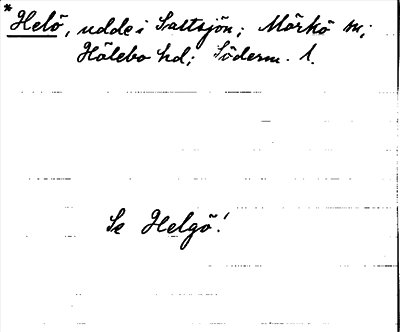 *Helö, udde i Saltsjön; Mörkö sn;
Hölebo hd; Söderm. l.
Se Helgö!